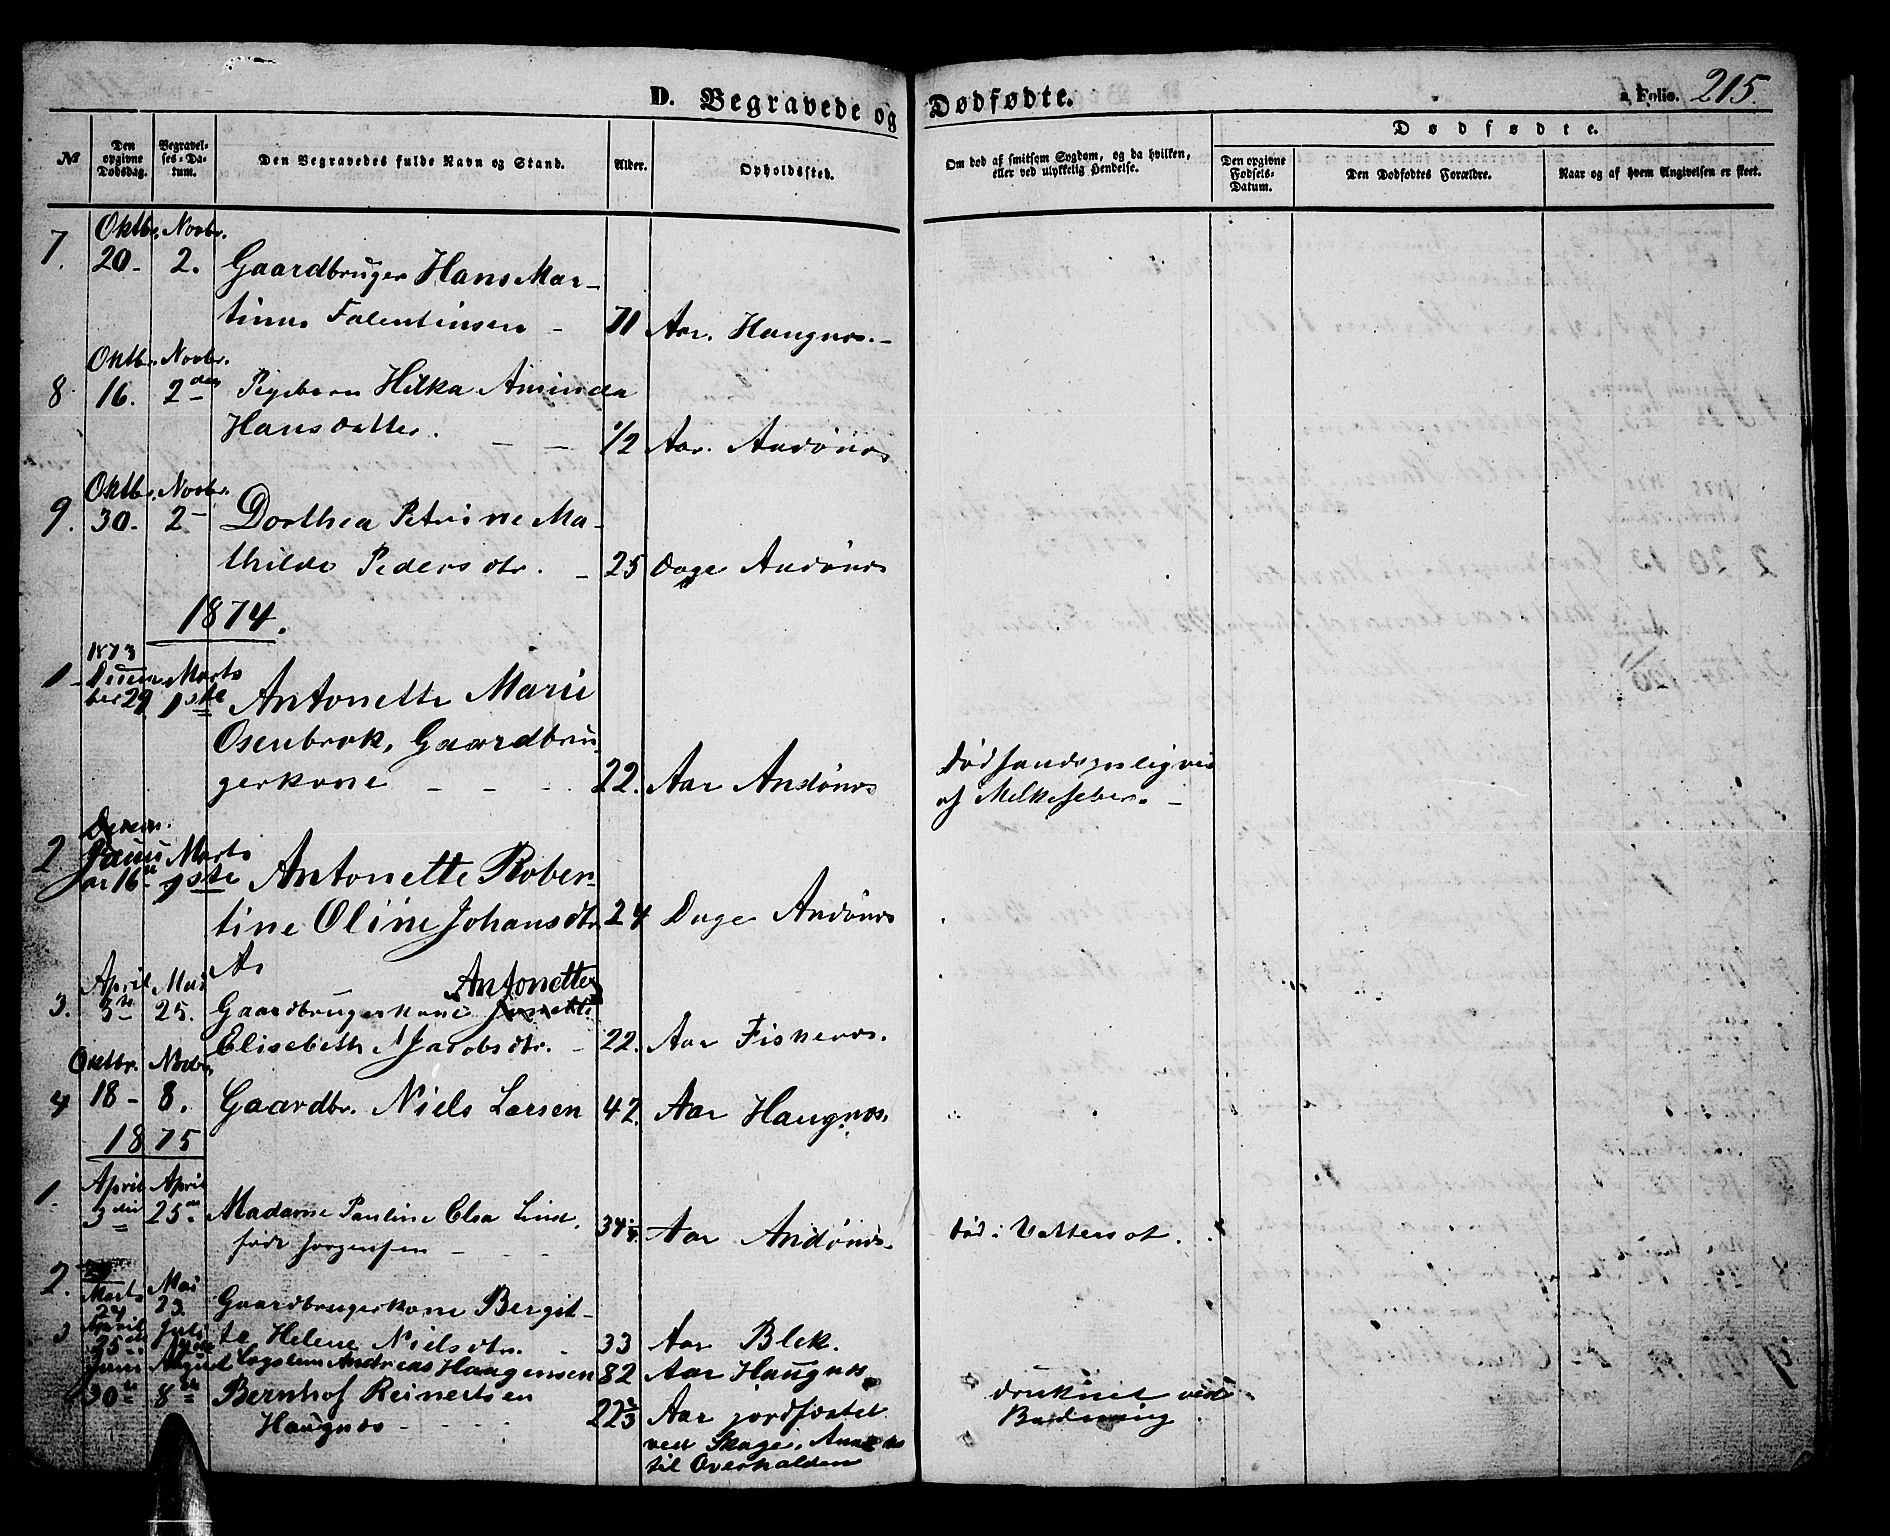 D. Begravede og Dødfødte.
a Folio. 215.
Dødfødte.
№
Den opgivne Dødsdag.
Begravelses-Datum.
Den Begravedes fulde Navn og Stand.
Alder.
Opholdssted.
Om død af smitsom Sygdom, og da hvilken, eller ved ulykkelig Hendelse.
Den opgivne Fødsels-Datum.
Den Dødfødtes Forældre.
Naar og af hvem Angivelsen er skeet.
Oktbr. Novbr.
7. 20- 2. Gaardbruger Hans Mar-
tinus Falentinsen - 71 Aar. Haugnæs.-
Oktbr. Novbr.
8 16. 2den Pigebarn Hilka Aminda
Hansdatter. - - 1/2 Aar. Andönæs
Oktbr. Novbr.
9. 30. 2- Dorthea Petrine Ma-
thilde Pedersdtr. - 25 Dage Andönæs
1874.
1873
1- Decem- Marts
ber 29 1ste Antonette Marie
Osenbrok, Gaardbru-
gerkone - - - 22. Aar Andönæs
død sandsynligvis
af Melkefeber. -
Decem.
2 Janu Marts
ar 16 1ste Antonette Rober-
tine Oline Johansdtr 24 Dage Andönæs
An
April Mai Antonette
3. 3- 25. Gaardbrugerkone
Elisebeth Jacobsdtr. - 22. Aar Fisknæs.
Oktbr. Novbr.
4 18- 8. Gaardbr. Niels Larsen 42. Aar Haugnæs.
1875
April April
1. 3die 25de Madame Pauline Elsa Lind,
født Jörgensen - - - 34 Aar Andönæs.
død i Vattersot.
2. Marts Mai
24 23. Gaardbrugerkone Bergit-
te Helene Nielsdtr. 33 Aar Blek.
3 April Juli
25 Logslem Andreas Haagensen 82 Aar Haugnæs
Juni August
30te 8de Bernhof Reinertsen
Haugnæs - - - 22 2/3 Aar jordfæstet
ved Skage, Annex
til Overhalden
druknet ved